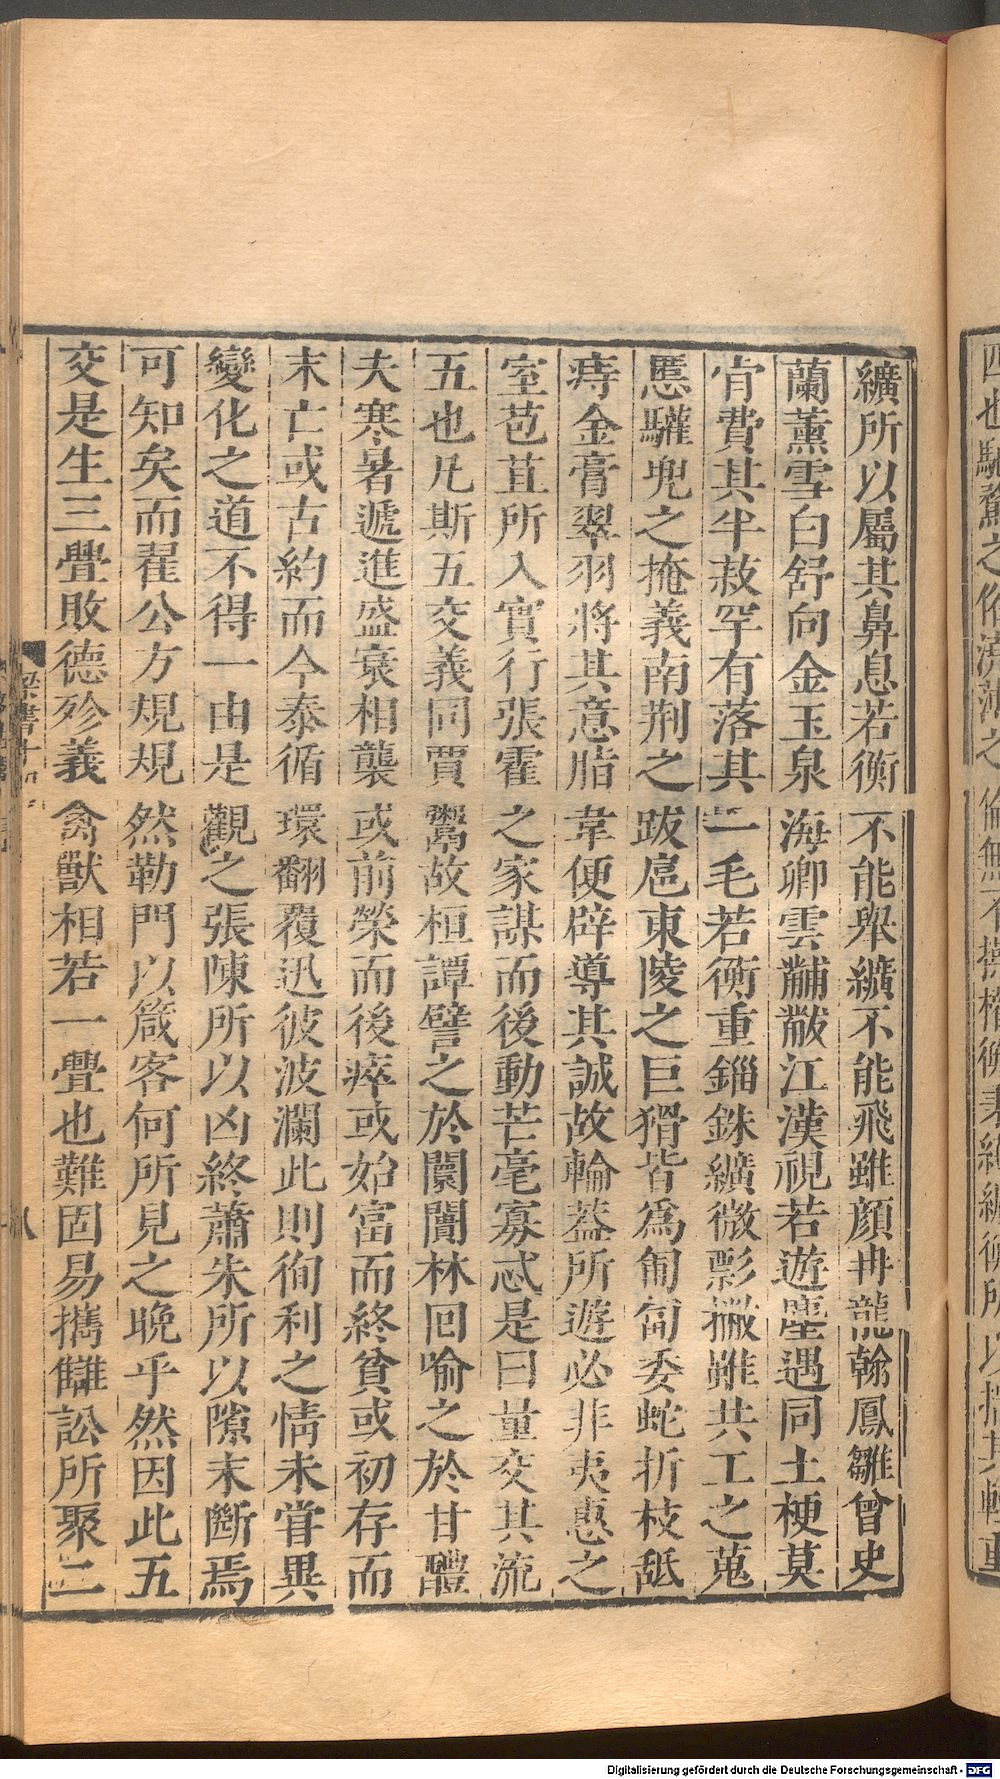 纊所以屬其鼻息若衡不能舉纊不能飛雖顏冉龍翰鳳雛曾史
蘭薰雪白舒向金玉泉海卿雲黼黻江漢視若遊塵遇同土梗莫
肯費其半菽罕有落其一毛若衡重錙銖纊微影撇雖共工之蒐
慝驩兜之掩義南荆之跋扈東陵之巨猾皆爲匍匐委蛇折枝舐
痔金膏翠羽將其意脂韋便辟導其誠故輪蓋所遊必非夷惠之
室苞苴所入實行張霍之家謀而後動芒毫寡忒是曰量交其流
五也凡斯五交義同賈鬻故桓譚譬之於闤闠林回喻之於甘醴
夫寒暑遞進盛衰相襲或前榮而後瘁或始富而終貧或初存而
末亡或古約而今泰循環翻覆迅彼波瀾此則徇利之情未嘗異
變化之道不得一由是觀之張陳所以凶終蕭朱所以隙末斷焉
可知矣而翟公方規規然勒門以箴客何所見之晚乎然因此五
交是生三釁敗德殄義禽獸相若一釁也難固易攜讎訟所聚二
梁書十四
八
Digitalisierung gefördert durch die Deutsche Forschungsgemeinschaft - DFG